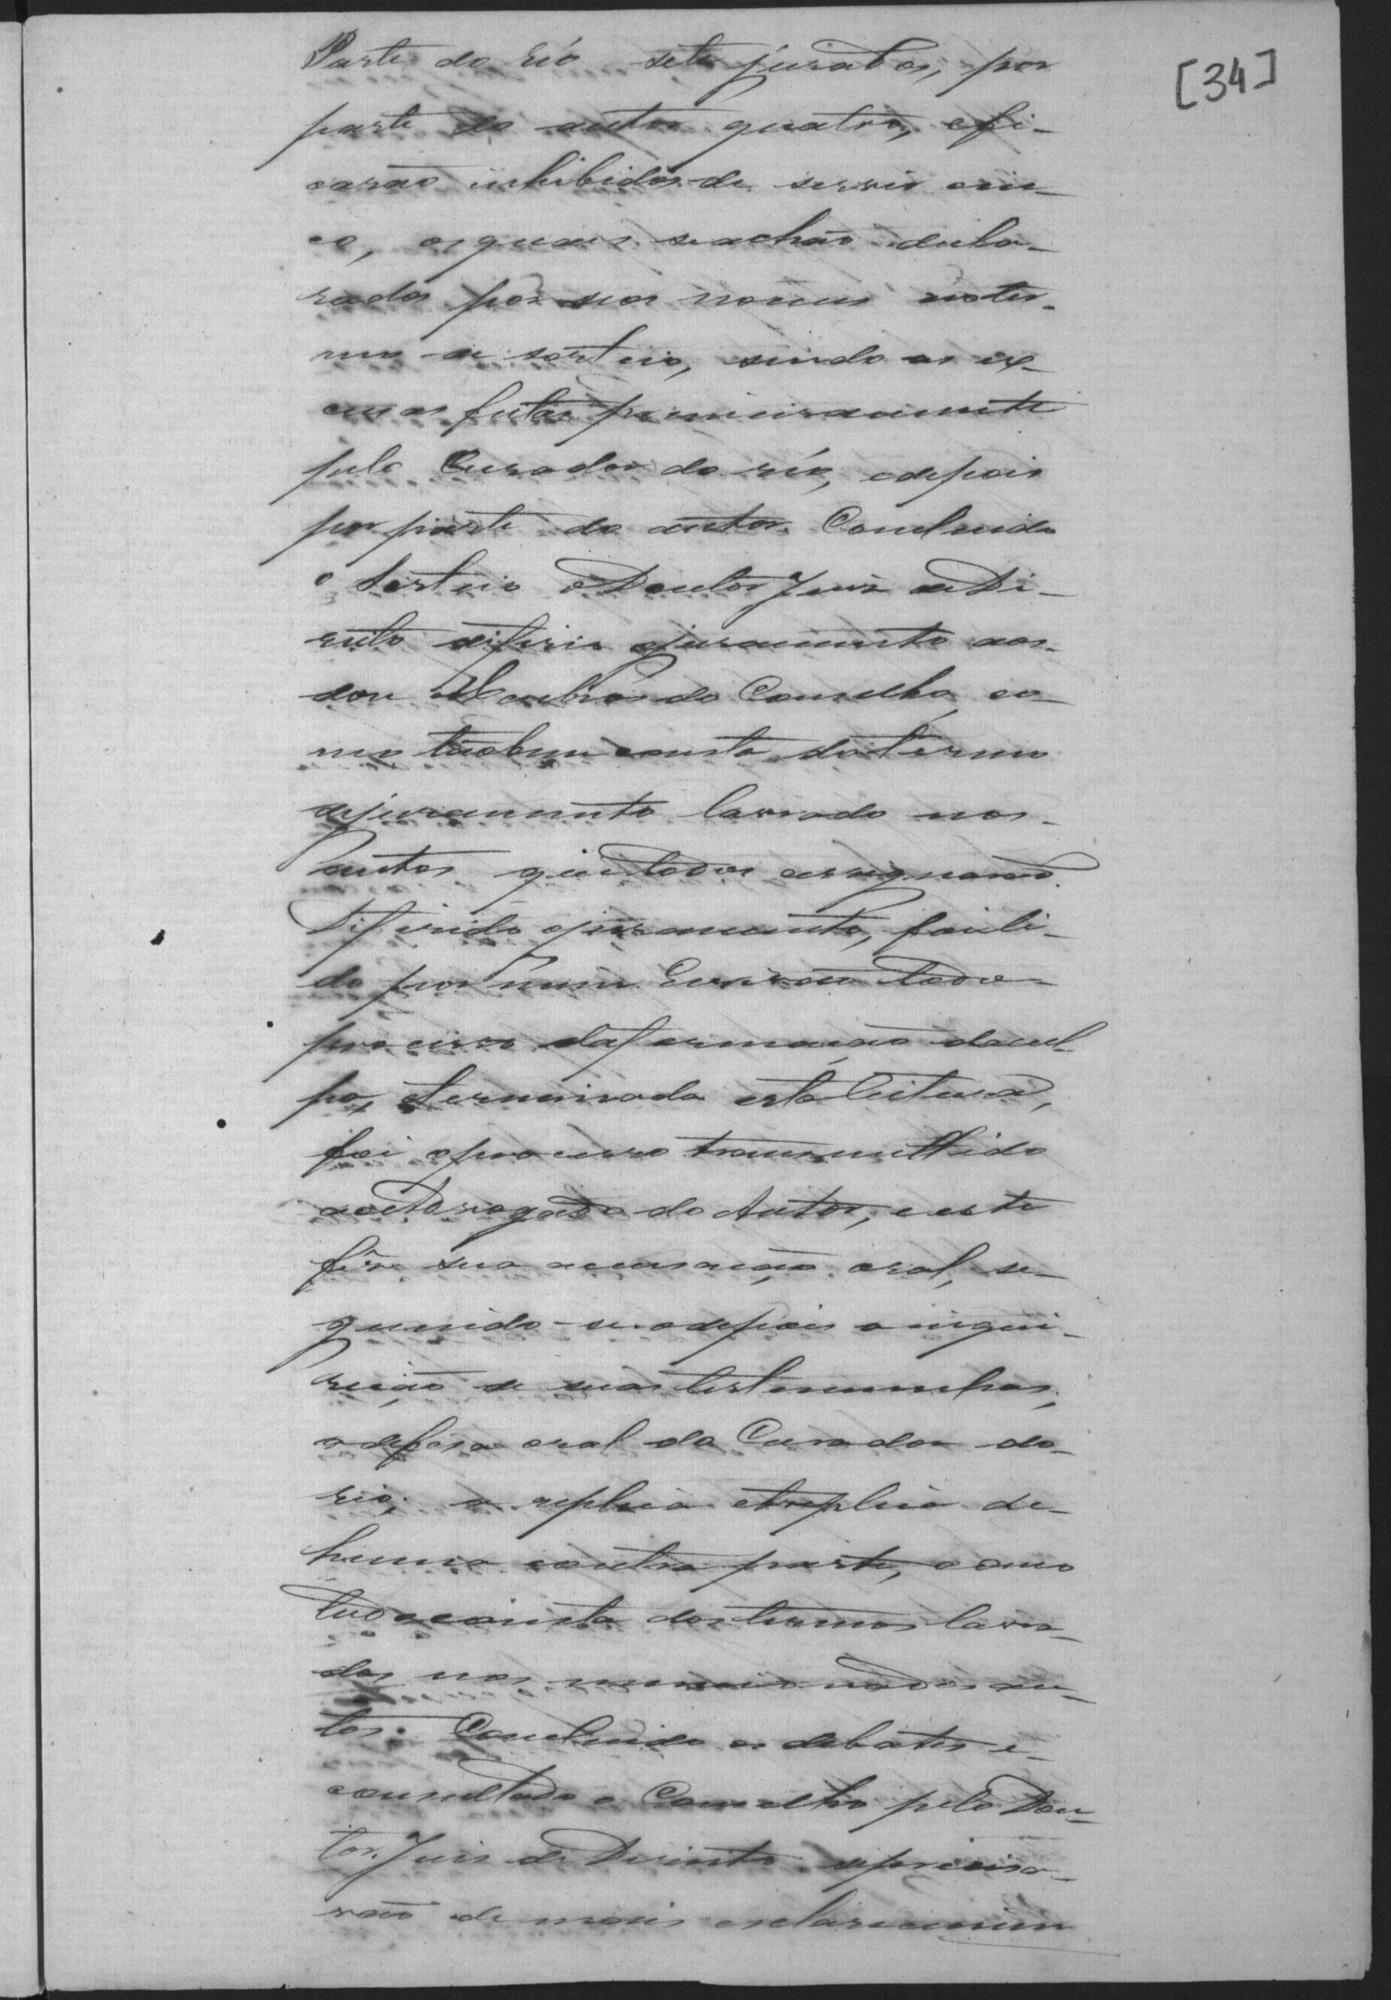 [34]
Parte do réo sete jurados, por
parte do autor quatro, e fi-
carão inhibidos de servir cin-
co, os quaes se achão decla-
rados por seos nomes no ter-
mo de sorteio, sendo as ex-
cusas feitas primeiramente
pelo Curador do réo, e depois
por parte do autor. Concluido
o sorteio o Doutor Juiz de Di-
reito deferio o juramento aos
doze Membros do Conselho, co-
mo tãobem consta do termo
de juramento lavrado nos
autos que todos assignarão.
Diferido o juramento, foi li-
do por mim Escrivão todo
processo da formação da cul-
pa, e terminada esta leitura,
foi o processo transmittido
ao Advogado do Autor, e este
fez sua accusação oral, se-
guindo-se depois a inqui-
rição de suas testemunhas,
a defesa oral do Curador do
réo, a replica e treplica de
huma e outra parte, como
tudo consta dos termos lavra-
dos nos mencionados au-
tos. Concluido os debates e
consultado o Conselho pelo Dou-
tor Juis de Direito se precisa-
vão de mais esclarecimen